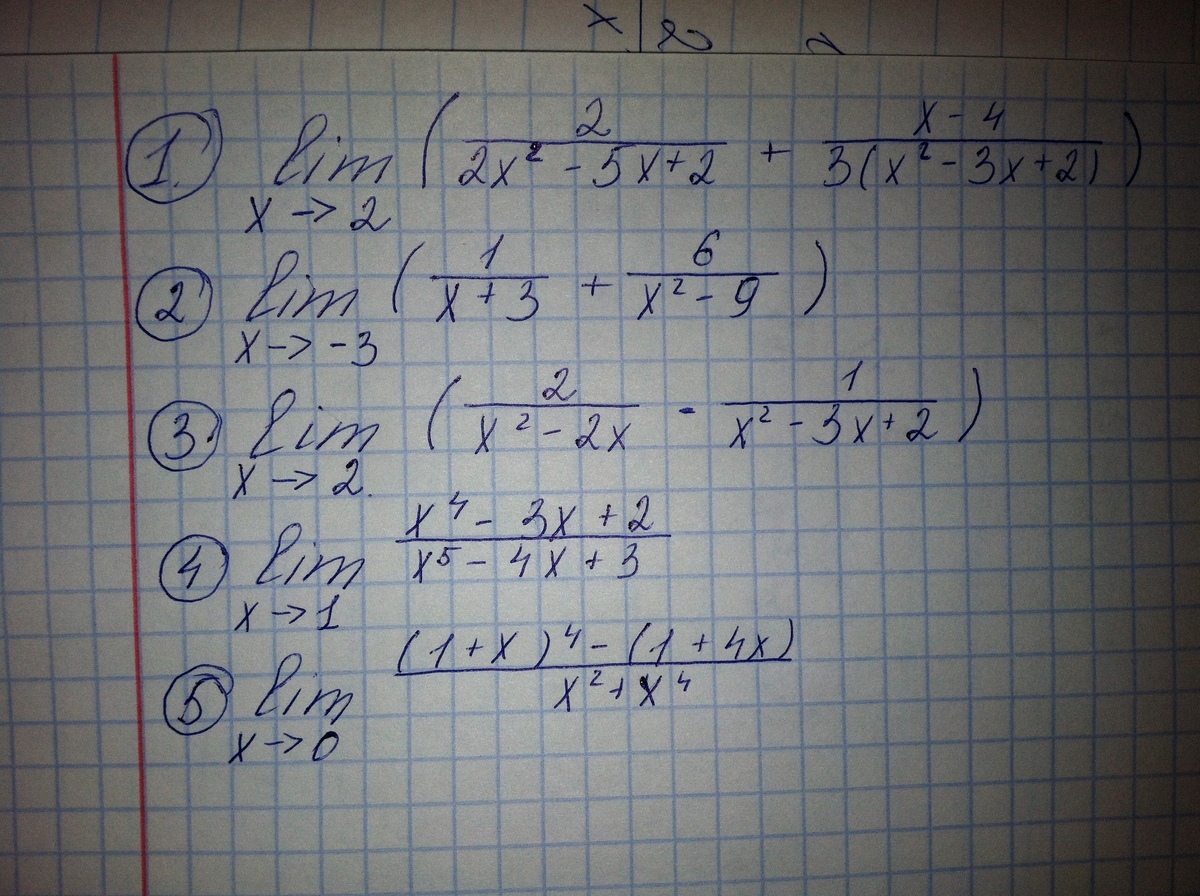 ① lim x→2 ( 2/(2x² - 5x + 2) + (x - 4)/(3(x² - 3x + 2)) )
② lim x→-3 ( 1/(x + 3) + 6/(x² - 9) )
③ lim x→2 ( 2/(x² - 2x) - 1/(x² - 3x + 2) )
④ lim x→1 (x⁴ - 3x + 2)/(x⁵ - 4x + 3)
⑤ lim x→0 ((1 + x)⁴ - (1 + 4x))/(x² + x⁴)